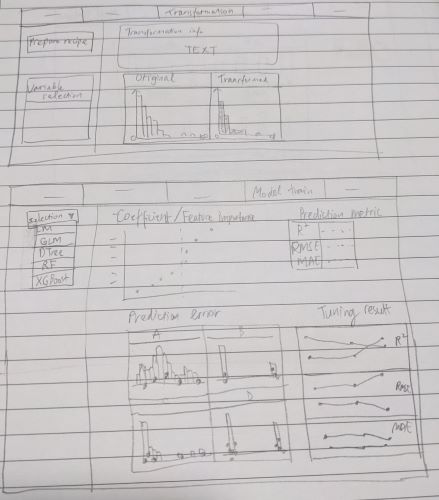 Transformation
Prepare recipe
Transformation info
TEXT
Variable selection
Original
Transformed
Model train
Selection
LM
GLM
DTree
RF
XGBoost
Coefficient/Feature Importance
Prediction metric
R²
RMSE
MAE
Prediction error
A
B
D
Tuning result
R²
RMSE
MAE